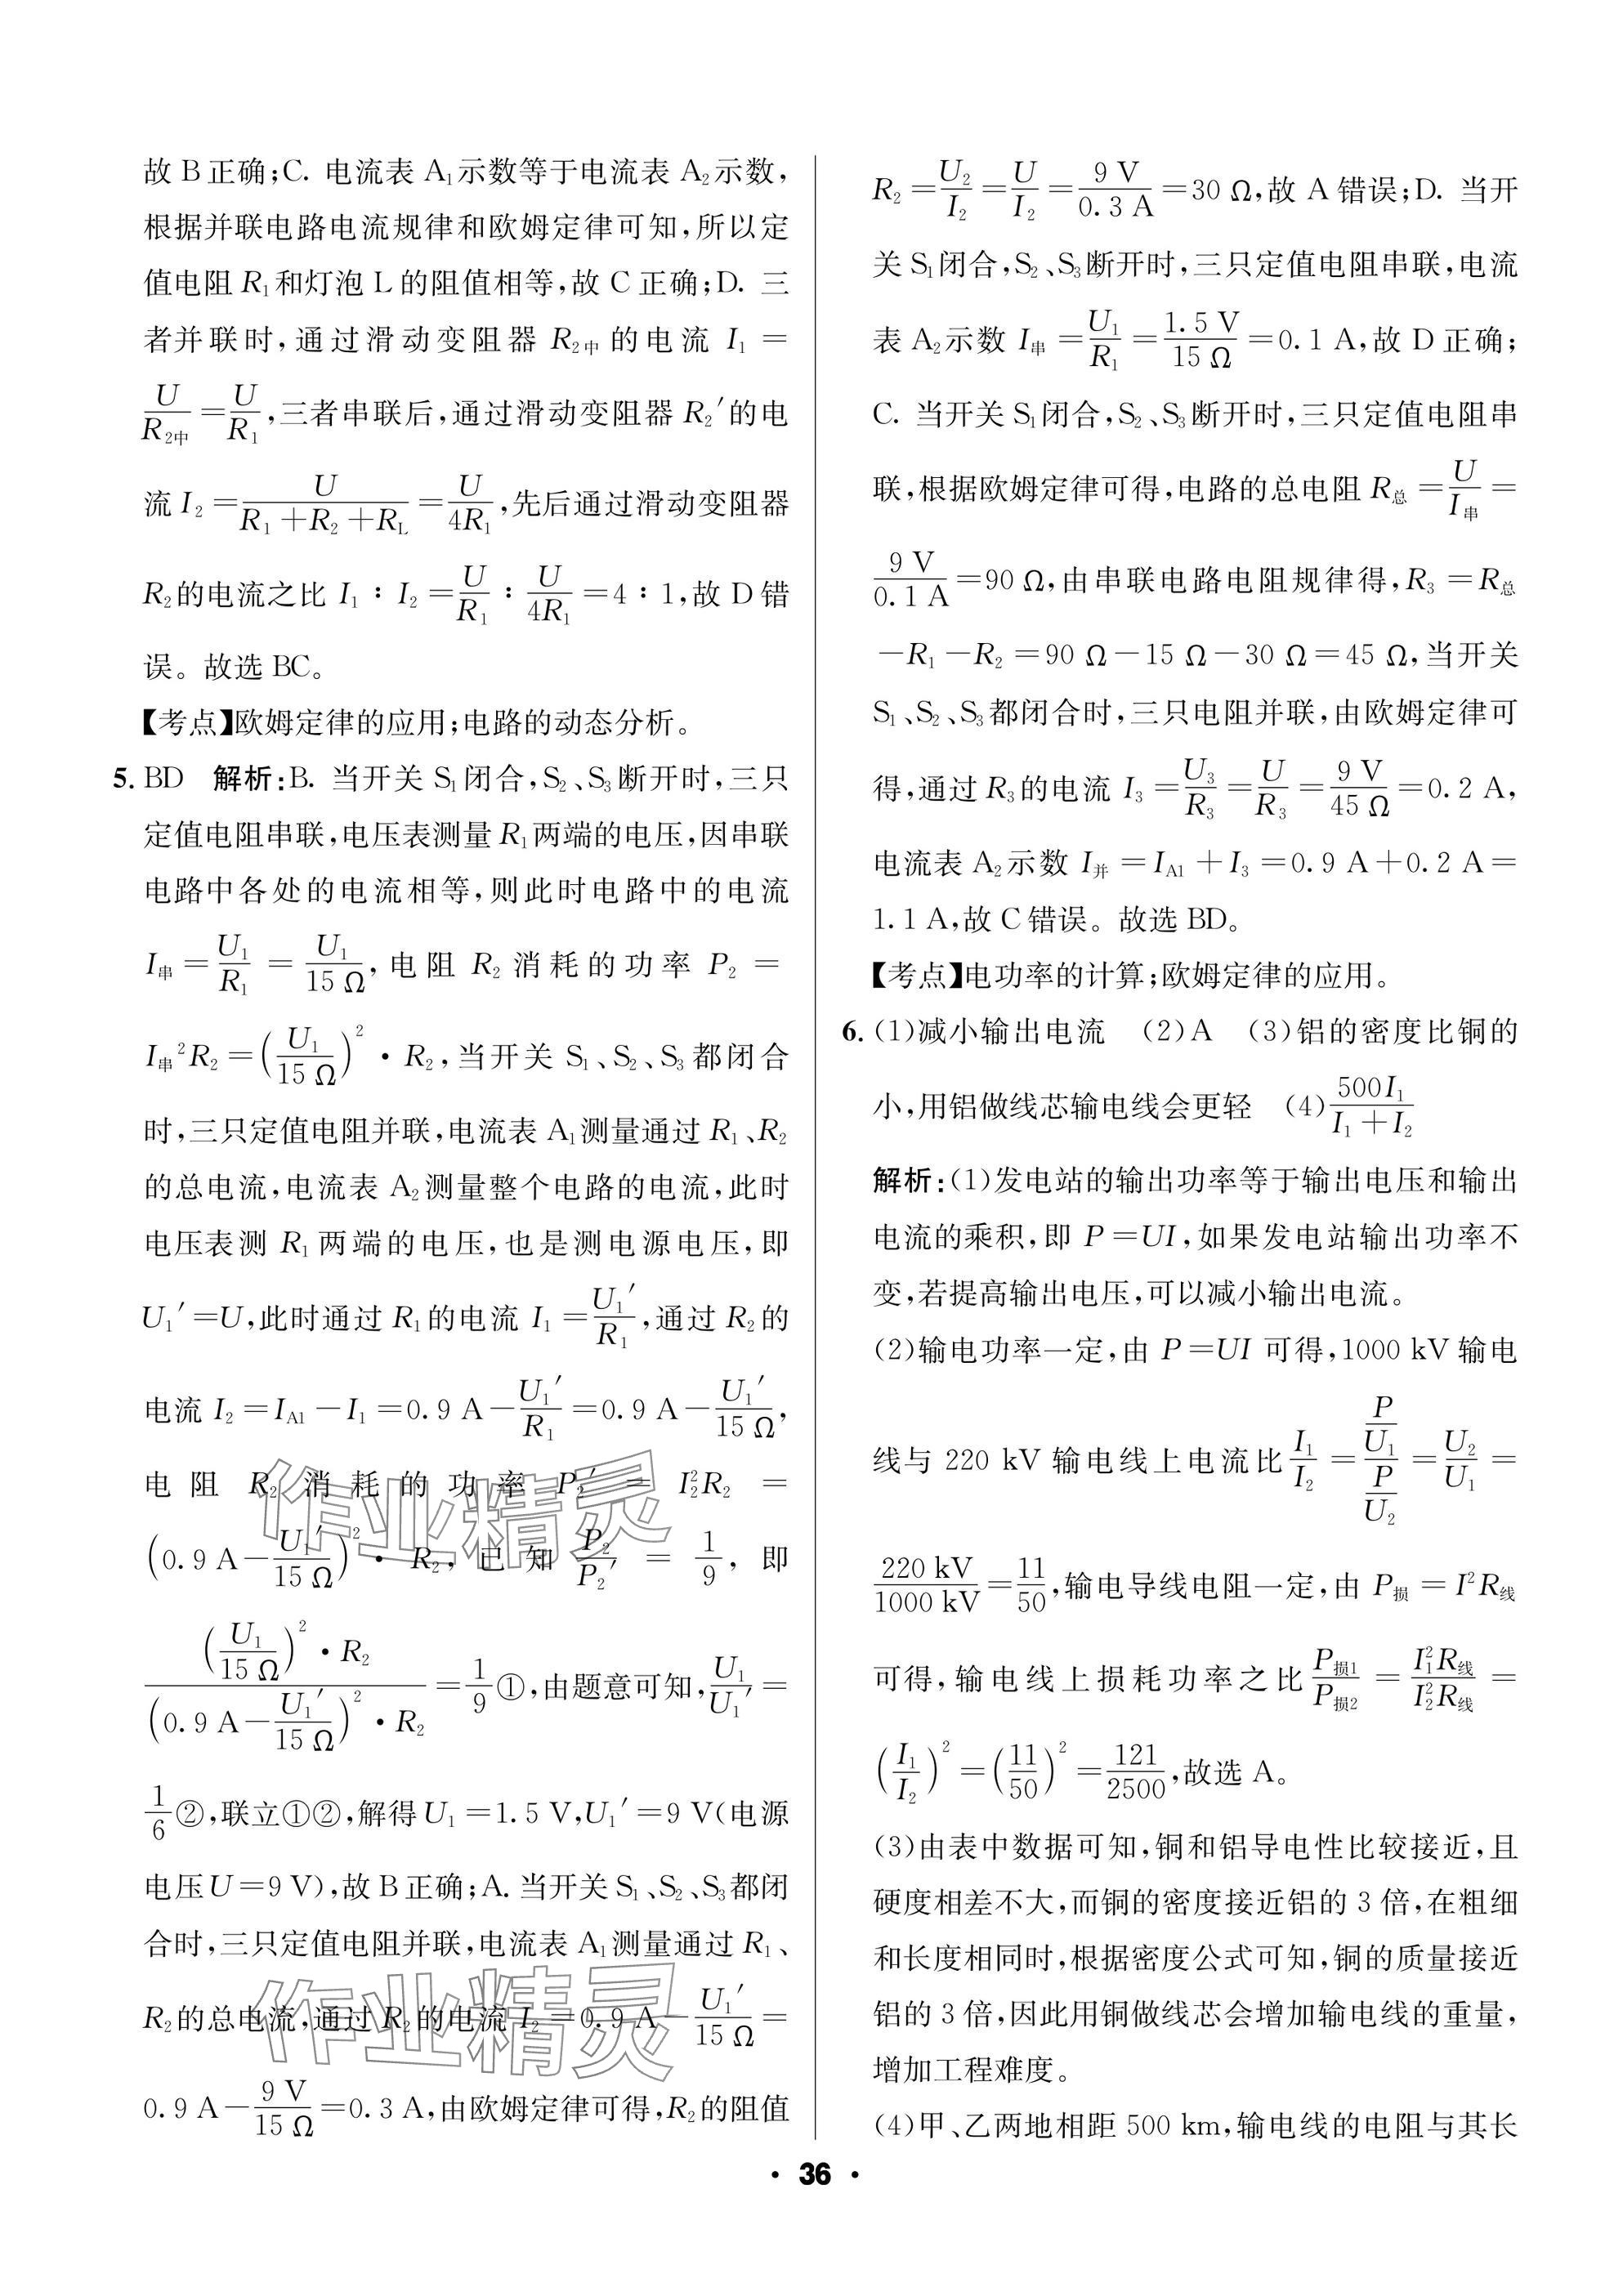 故 B 正确;C. 电流表 A₁示数等于电流表 A₂示数,
根据并联电路电流规律和欧姆定律可知,所以定
值电阻 R₁和灯泡 L 的阻值相等,故 C 正确;D. 三
者并联时,通过滑动变阻器 R₂中 的电流 I₁ =
U/R₂中 = U/R₁,三者串联后,通过滑动变阻器 R₂′的电
流 I₂ = U/(R₁+R₂+R_L) = U/(4R₁),先后通过滑动变阻器
R₂的电流之比 I₁ : I₂ = U/R₁ : U/(4R₁) = 4 : 1,故 D 错
误。故选 BC。
【考点】欧姆定律的应用;电路的动态分析。
5. BD 解析:B. 当开关 S₁闭合,S₂、S₃断开时,三只
定值电阻串联,电压表测量 R₁两端的电压,因串联
电路中各处的电流相等,则此时电路中的电流
I串 = U₁/R₁ = U₁/(15 Ω),电阻 R₂ 消耗的功率 P₂ =
I串²R₂ = (U₁/(15 Ω))² · R₂,当开关 S₁、S₂、S₃都闭合
时,三只定值电阻并联,电流表 A₁测量通过 R₁、R₂
的总电流,电流表 A₂测量整个电路的电流,此时
电压表测 R₁ 两端的电压,也是测电源电压,即
U₁′=U,此时通过 R₁的电流 I₁ = U₁′/R₁,通过 R₂的
电流 I₂ = I_A1 − I₁ = 0.9 A − U₁′/R₁ = 0.9 A − U₁′/(15 Ω),
电阻 R₂ 消耗的功率 P₂′ = I₂²R₂ =
(0.9 A − U₁′/(15 Ω))² · R₂,已知 P₂/P₂′ = 1/9,即
((U₁/(15 Ω))² · R₂)/((0.9 A − U₁′/(15 Ω))² · R₂) = 1/9 ①,由题意可知,U₁/U₁′ =
1/6 ②,联立①②,解得 U₁ = 1.5 V,U₁′ = 9 V(电源
电压 U=9 V),故 B 正确;A. 当开关 S₁、S₂、S₃都闭
合时,三只定值电阻并联,电流表 A₁测量通过 R₁、
R₂的总电流,通过 R₂的电流 I₂ = 0.9 A − U₁′/(15 Ω) =
0.9 A − 9 V/(15 Ω) = 0.3 A,由欧姆定律可得,R₂的阻值
R₂ = U₂/I₂ = U/I₂ = 9 V/(0.3 A) = 30 Ω,故 A 错误;D. 当开
关 S₁闭合,S₂、S₃断开时,三只定值电阻串联,电流
表 A₂示数 I串 = U₁/R₁ = 1.5 V/(15 Ω) = 0.1 A,故 D 正确;
C. 当开关 S₁闭合,S₂、S₃断开时,三只定值电阻串
联,根据欧姆定律可得,电路的总电阻 R总 = U/I串 =
9 V/(0.1 A) = 90 Ω,由串联电路电阻规律得,R₃ = R总
−R₁−R₂=90 Ω−15 Ω−30 Ω=45 Ω,当开关
S₁、S₂、S₃都闭合时,三只电阻并联,由欧姆定律可
得,通过 R₃的电流 I₃ = U₃/R₃ = U/R₃ = 9 V/(45 Ω) = 0.2 A,
电流表 A₂示数 I并 = I_A1 + I₃ = 0.9 A+0.2 A=
1.1 A,故 C 错误。故选 BD。
【考点】电功率的计算;欧姆定律的应用。
6. (1)减小输出电流 (2)A (3)铝的密度比铜的
小,用铝做线芯输电线会更轻 (4)500I₁/(I₁+I₂)
解析:(1)发电站的输出功率等于输出电压和输出
电流的乘积,即 P=UI,如果发电站输出功率不
变,若提高输出电压,可以减小输出电流。
(2)输电功率一定,由 P=UI 可得,1000 kV 输电
线与 220 kV 输电线上电流比 I₁/I₂ = (P/U₁)/(P/U₂) = U₂/U₁ =
220 kV/1000 kV = 11/50,输电导线电阻一定,由 P损 = I²R线
可得,输电线上损耗功率之比 P损1/P损2 = I₁²R线/I₂²R线 =
(I₁/I₂)² = (11/50)² = 121/2500,故选 A。
(3)由表中数据可知,铜和铝导电性比较接近,且
硬度相差不大,而铜的密度接近铝的 3 倍,在粗细
和长度相同时,根据密度公式可知,铜的质量接近
铝的 3 倍,因此用铜做线芯会增加输电线的重量,
增加工程难度。
(4)甲、乙两地相距 500 km,输电线的电阻与其长
· 36 ·
作业精灵
作业精灵